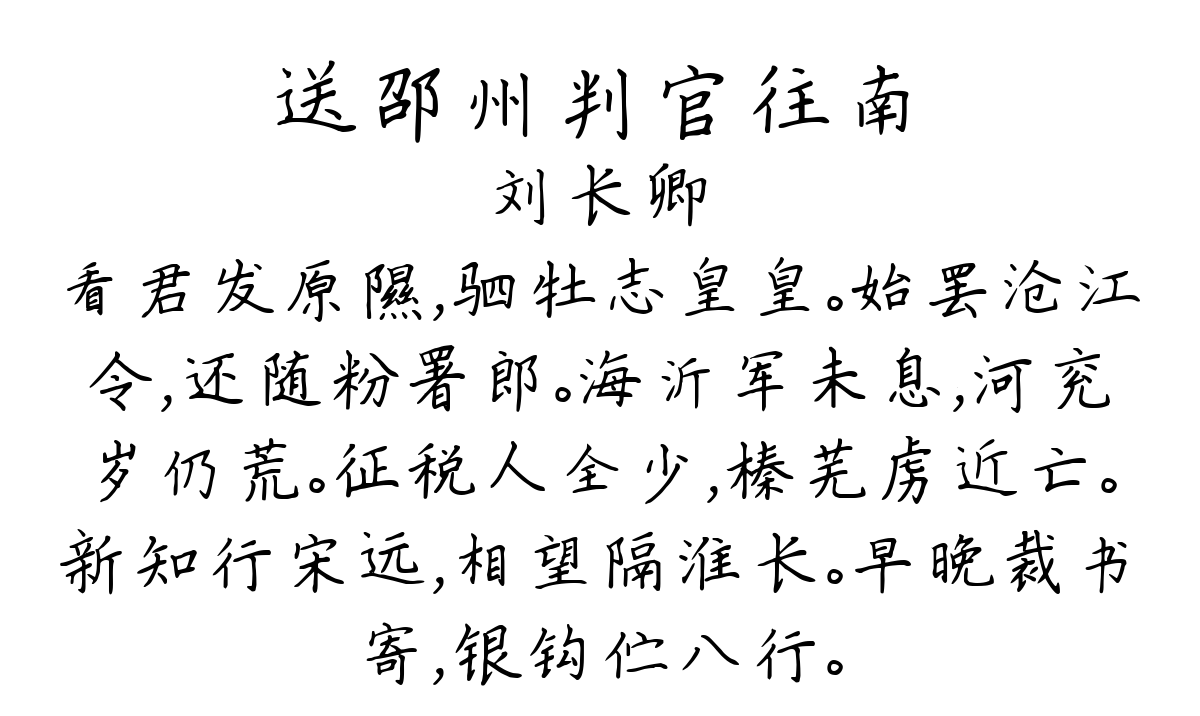 送邵州判官往南
刘长卿
看君发原隰,驷牡志皇皇。始罢沧江
令,还随粉署郎。海沂军未息,河兖
岁仍荒。征税人全少,榛芜虏近亡。
新知行宋远,相望隔淮长。早晚裁书
寄,银钩伫八行。